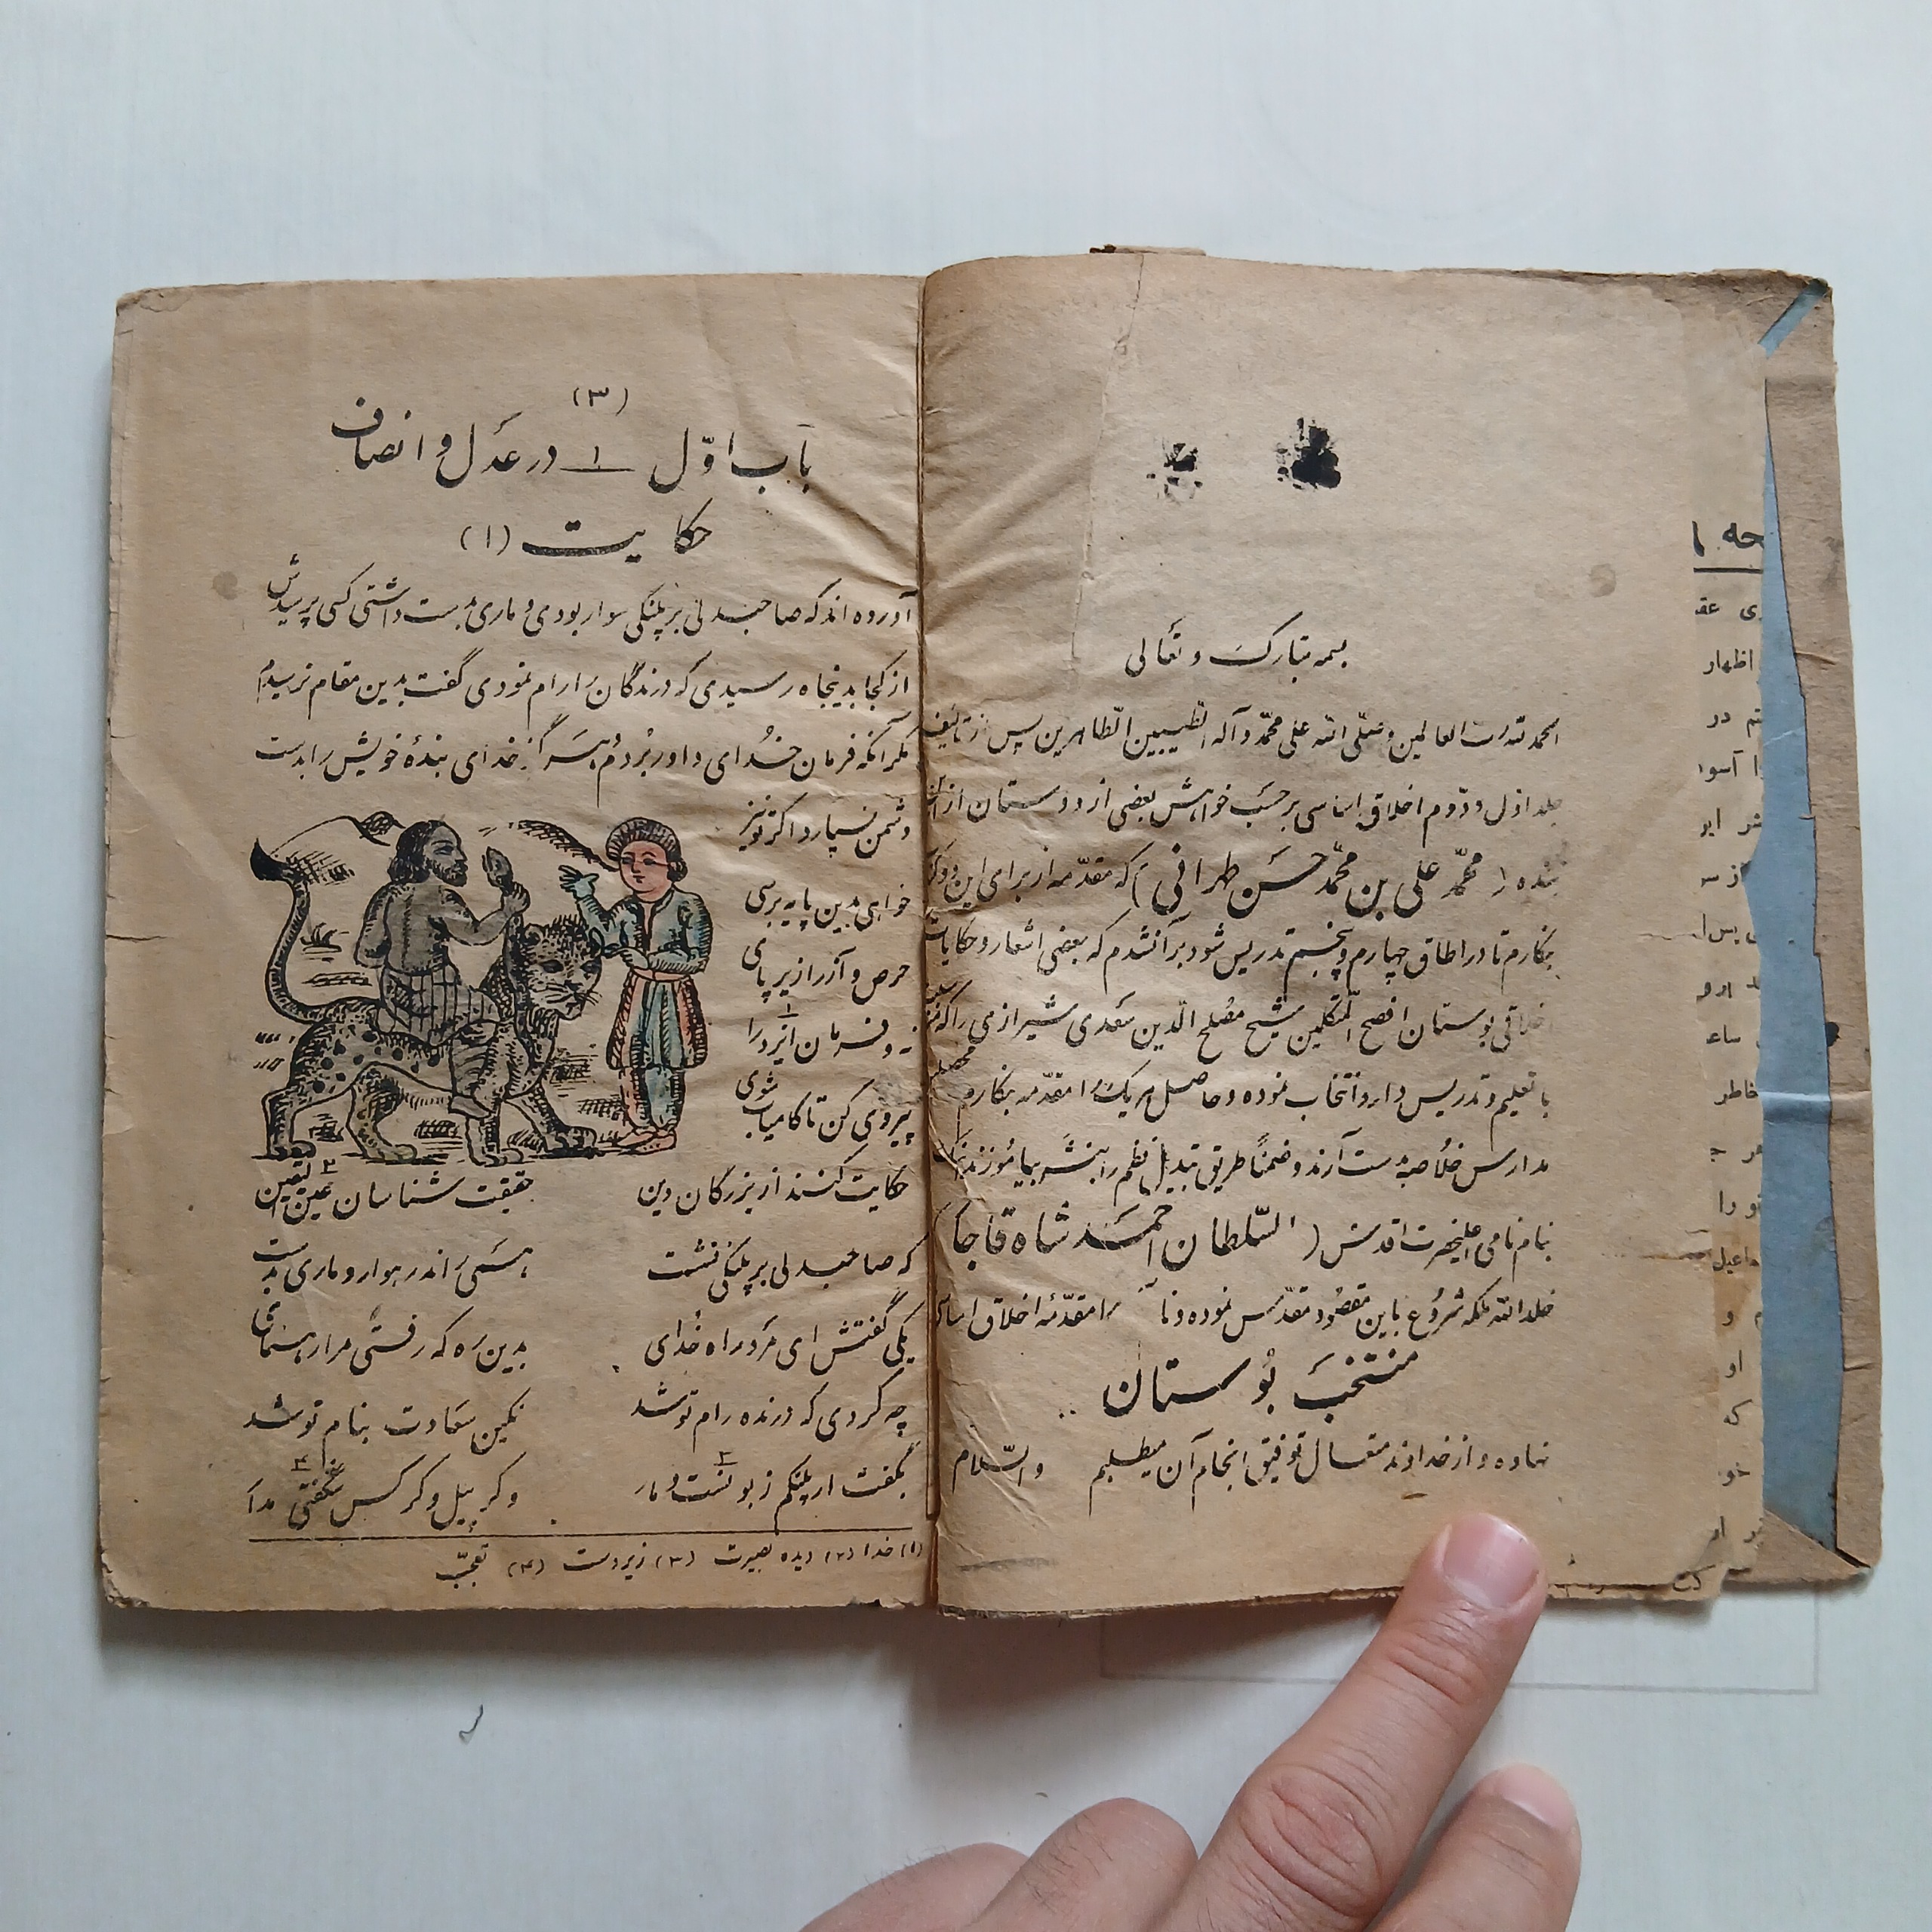 بسمه تبارک و تعالی
الحمد لله رب العالمین و صلی الله علی محمد و آله الطیبین الطاهرین پس از تألیف
جلد اول و دوم اخلاق اساسی بر حسب خواهش بعضی از دوستان از
شده (محمد علی بن محمد حسن طهرانی) که مقدمه از برای این دو
بنکارم تا در اطاق چهارم و پنجم تدریس شود بر آنشدم که بعضی اشعار و حکایات
اخلاقی بوستان افصح المتکلمین شیخ مصلح الدین سعدی شیرازی را که
با تعلیم و تدریس دارد انتخاب نموده و حاصل هر یک را مقدمه بنکارم
مدارس خلاصه بدست آرند و ضمناً طریق تبدیل نظم را بنثر بیاموزند
بنام نامی اعلیحضرت اقدس (السلطان احمد شاه قاجار)
خلد الله ملکه شروع باین مقصود مقدس نموده و نام را مقدمه اخلاق اساسی
منتخب بوستان
نهاده و از خداوند متعال توفیق انجام آن میطلبم والسلام
(۳)
باب اوّل ۱ در عدل و انصاف
حکایت (۱)
آورده اند که صاحبدلی بر پلنکی سوار بودی و ماری بدست داشتی کسی پرسیدش
از کجا بدینجاه رسیدی که درندگان را رام نمودی گفت بدین مقام نرسیدم
مکر آنکه فرمان خدای داور بردم هرگز خدای بندهٔ خویش را بدست
دشمن نسپارد اکر تو نیز
خواهی بدین پایه برسی
حرص و آز را زیر پای
نه و فرمان ایزد را
پیروی کن تا کامیاب شوی
حکایت کنند از بزرگان دین حقیقت شناسان عین الیقین
که صاحبدلی بر پلنکی نشست همی راند رهوار و ماری بدست
یکی گفتش ای مرد راه خدای بدین ره که رفتی مرا رهنمای
چه کردی که درنده رام تو شد نکین سعادت بنام تو شد
بگفت ار پلنکم زبونست و مار وکر پیل و کرکس شگفتی مدار
(۱) خدا (۲) دیده بصیرت (۳) زیردست (۴) تعجّب